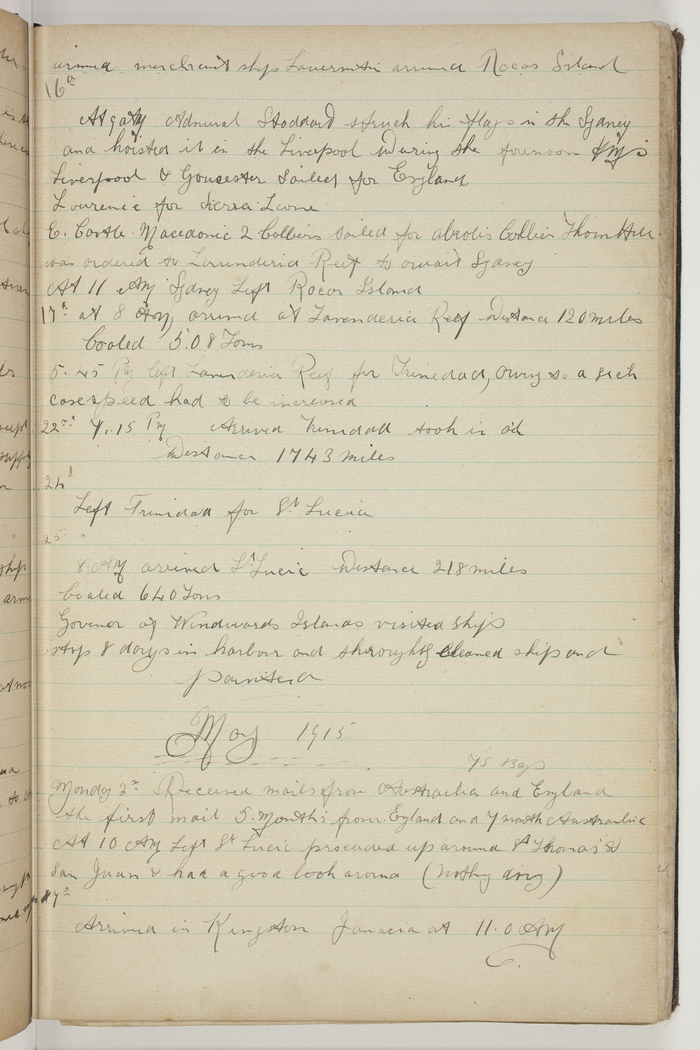 armed merchant ship arrived Rocas Island
16th
At Admiral Stoddard struck his flag in the Sydney
and hoisted it in the Liverpool During the forenoon
Liverpool & Goucester Sailed for England
Lourenic for Sierra Leone
E. Castle. Macedonic 2 Colliers sailed for abrolis Collier Thorn Hill
was ordered to Reef to await Sydney
At 11 AM Sydney Left Rocas Island
17th at 8 AM, arrived at Lavenderia Reef Distance 120 miles
Coaled 508 Tons
5.45 PM left Lavenderia Reef for Trinedad, Owing to a sick
case speed had to be increased
22nd 7.15 PM Arrived Trinidad took in oil
Distance 1743 miles
24th
Left Trinidad for St Lucia
25
8 AM arrived St Lucic Distance 218 miles
Coaled 640 Tons
Govenor of Windwards Islands visited ship
stop 8 days in harbour and throughly cleaned ship and
painted
May 1915
75 Bags
Monday 2nd Received mails from Australia and England
the first mail 5 Months from England and 7 month Australia
At 10 AM Left St Lucic proceeded up around St Thomas &
San Juan & had a good look around (nothing doing)
7th
Arrived in Kingston Jamacia at 11.0 AM